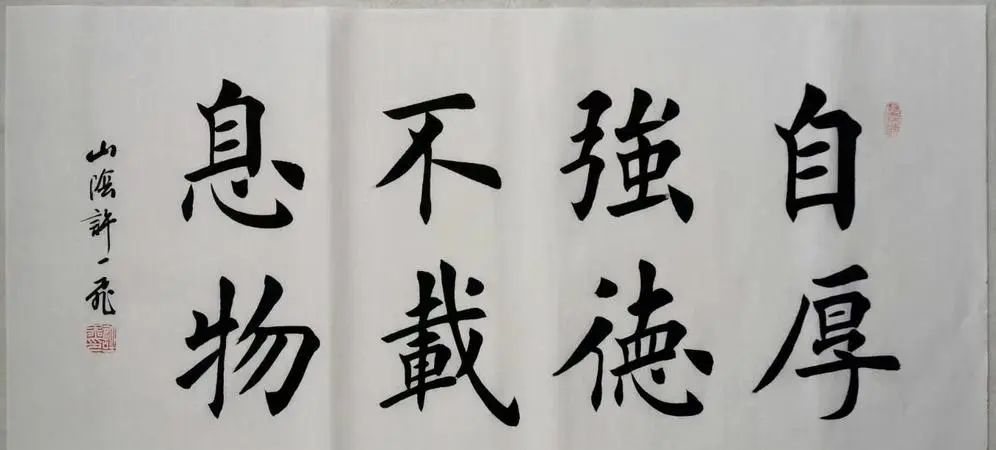 自強不息
厚德載物
山陰許一飛